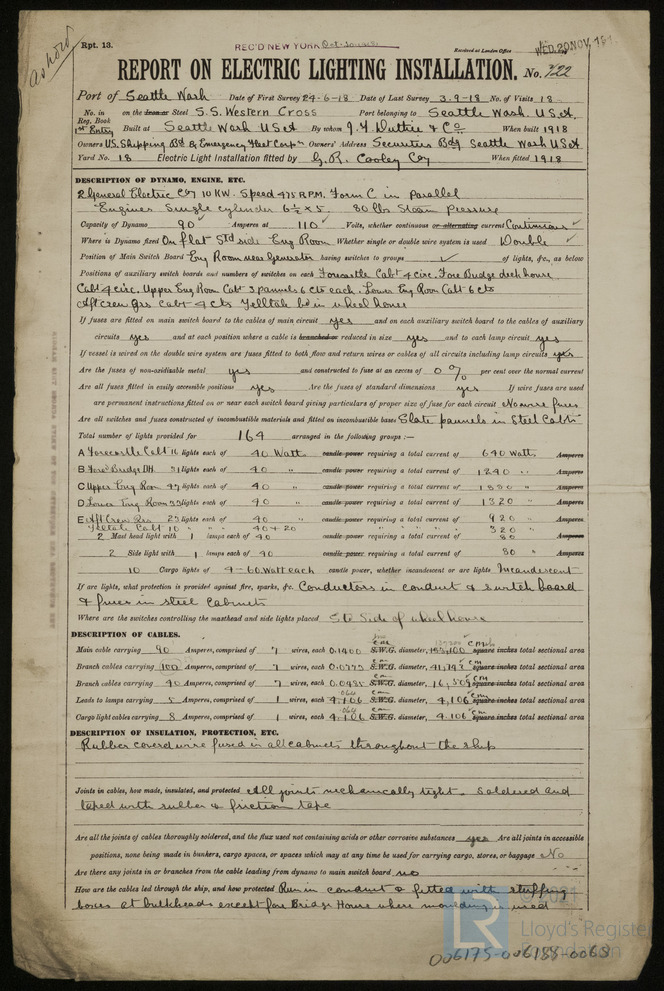 Rpt. 13.
REC'D NEW YORK Oct
Received at London Office WED. 20 NOV. 191
REPORT ON ELECTRIC LIGHTING INSTALLATION. No. 722
Port of Seattle Wash Date of First Survey 24-6-18 Date of Last Survey 3-9-18 No. of Visits 18
No. in Reg. Book on the Iron or Steel S.S. Western Cross Port belonging to Seattle Wash. USA.
1st Entry Built at Seattle Wash USA By whom J. F. Duthie & Co When built 1918
Owners US. Shipping Bd & Emergency Fleet Corpn Owners' Address Securities Bdg Seattle Wash USA
Yard No. 18 Electric Light Installation fitted by G. R. Cooley Coy When fitted 1918
DESCRIPTION OF DYNAMO, ENGINE, ETC.
2 General Electric Coy 10 KW. Speed 475 R.P.M. Form C in parallel
Engines Single cylinder 6½ x 5. 80 lbs Steam Pressure
Capacity of Dynamo 90 Amperes at 110 Volts, whether continuous or alternating current Continuous
Where is Dynamo fixed On flat Stbd side Eng Room Whether single or double wire system is used Double
Position of Main Switch Board Eng Room near Generator having switches to groups ✓ of lights, &c., as below
Positions of auxiliary switch boards and numbers of switches on each Forecastle Cabt 4 circ. Fore Bridge deck house
Cabt 4 circ. Upper Eng Room Cabt 2 pannels 6 cts each. Lower Eng Room Cabt 6 cts
Aft Crew Qrs cabt 4 cts Telltale bd in wheel house
If fuses are fitted on main switch board to the cables of main circuit yes and on each auxiliary switch board to the cables of auxiliary
circuits yes and at each position where a cable is branched or reduced in size yes and to each lamp circuit yes
If vessel is wired on the double wire system are fuses fitted to both flow and return wires or cables of all circuits including lamp circuits yes
Are the fuses of non-oxidizable metal yes and constructed to fuse at an excess of 0 % per cent over the normal current
Are all fuses fitted in easily accessible positions yes Are the fuses of standard dimensions yes If wire fuses are used
are permanent instructions fitted on or near each switch board giving particulars of proper size of fuse for each circuit No wire fuses
Are all switches and fuses constructed of incombustible materials and fitted on incombustible bases Slate pannels in Steel Cabts
Total number of lights provided for 164 arranged in the following groups :—
A Forecastle Cabt 16 lights each of 40 Watt candle power requiring a total current of 640 Watts Amperes
B Fore Bridge DH. 31 lights each of 40 " candle power requiring a total current of 1240 " Amperes
C Upper Eng Rom 47 lights each of 40 " candle power requiring a total current of 1880 " Amperes
D Lower Eng Room 33 lights each of 40 " candle power requiring a total current of 1320 " Amperes
E Aft Crew Qrs 23 lights each of 40 " candle power requiring a total current of 920 " Amperes
Telltale Cabt 10 " " 40 & 20 " " " 320 "
2 Mast head light with 1 lamps each of 40 candle power requiring a total current of 80 Amperes
2 Side light with 1 lamps each of 40 candle power requiring a total current of 80 " Amperes
10 Cargo lights of 4-60. Watt each candle power, whether incandescent or arc lights Incandescent
If arc lights, what protection is provided against fire, sparks, &c. Conductors in conduit & switch board
& fuses in steel Cabinets
Where are the switches controlling the masthead and side lights placed Stb Side of wheel house
DESCRIPTION OF CABLES.
Main cable carrying 90 Amperes, comprised of 7 wires, each 0.1400 S.W.G. diameter, 133,100 square inches total sectional area
Branch cables carrying 100 Amperes, comprised of 7 wires, each 0.0772 S.W.G. diameter, 41,745 square inches total sectional area
Branch cables carrying 40 Amperes, comprised of 7 wires, each 0.0485 S.W.G. diameter, 16,509 square inches total sectional area
Leads to lamps carrying 5 Amperes, comprised of 1 wires, each 4,106 S.W.G. diameter, 4,106 square inches total sectional area
Cargo light cables carrying 8 Amperes, comprised of 1 wires, each 4,106 S.W.G. diameter, 4.106 square inches total sectional area
DESCRIPTION OF INSULATION, PROTECTION, ETC.
Rubber coverd wire fused in all cabinets throughout the ship
Joints in cables, how made, insulated, and protected All joints mechanically tight. Soldered and
taped with rubber & friction tape
Are all the joints of cables thoroughly soldered, and the flux used not containing acids or other corrosive substances yes Are all joints in accessible
positions, none being made in bunkers, cargo spaces, or spaces which may at any time be used for carrying cargo, stores, or baggage No
Are there any joints in or branches from the cable leading from dynamo to main switch board no
How are the cables led through the ship, and how protected Run in conduit & fitted with stuffing
boxes at bulkheads except fore Bridge House where moulding is used
© 2021
LR
Lloyd's Register
Foundation
006175-006188-0068